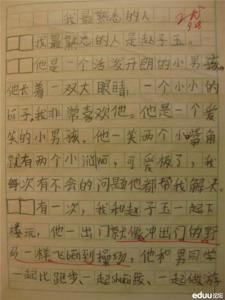 我最熟悉的人
我最熟悉的人是赵子玉。
他是一个活泼开朗的小男孩。
他长着一双大眼睛，一个小小的
鼻子我非常喜欢他。他是一个爱
笑的小男孩，他一笑两个小嘴角
就有两个小酒窝，可爱极了，我
每次有不会的问题他都帮我解决。
有一次，我和赵子玉一起下
楼玩，他一出门就像冲出门的野
马一样飞跑到操场，他和男同学
一起比跑步、一起 一起做游
eduu